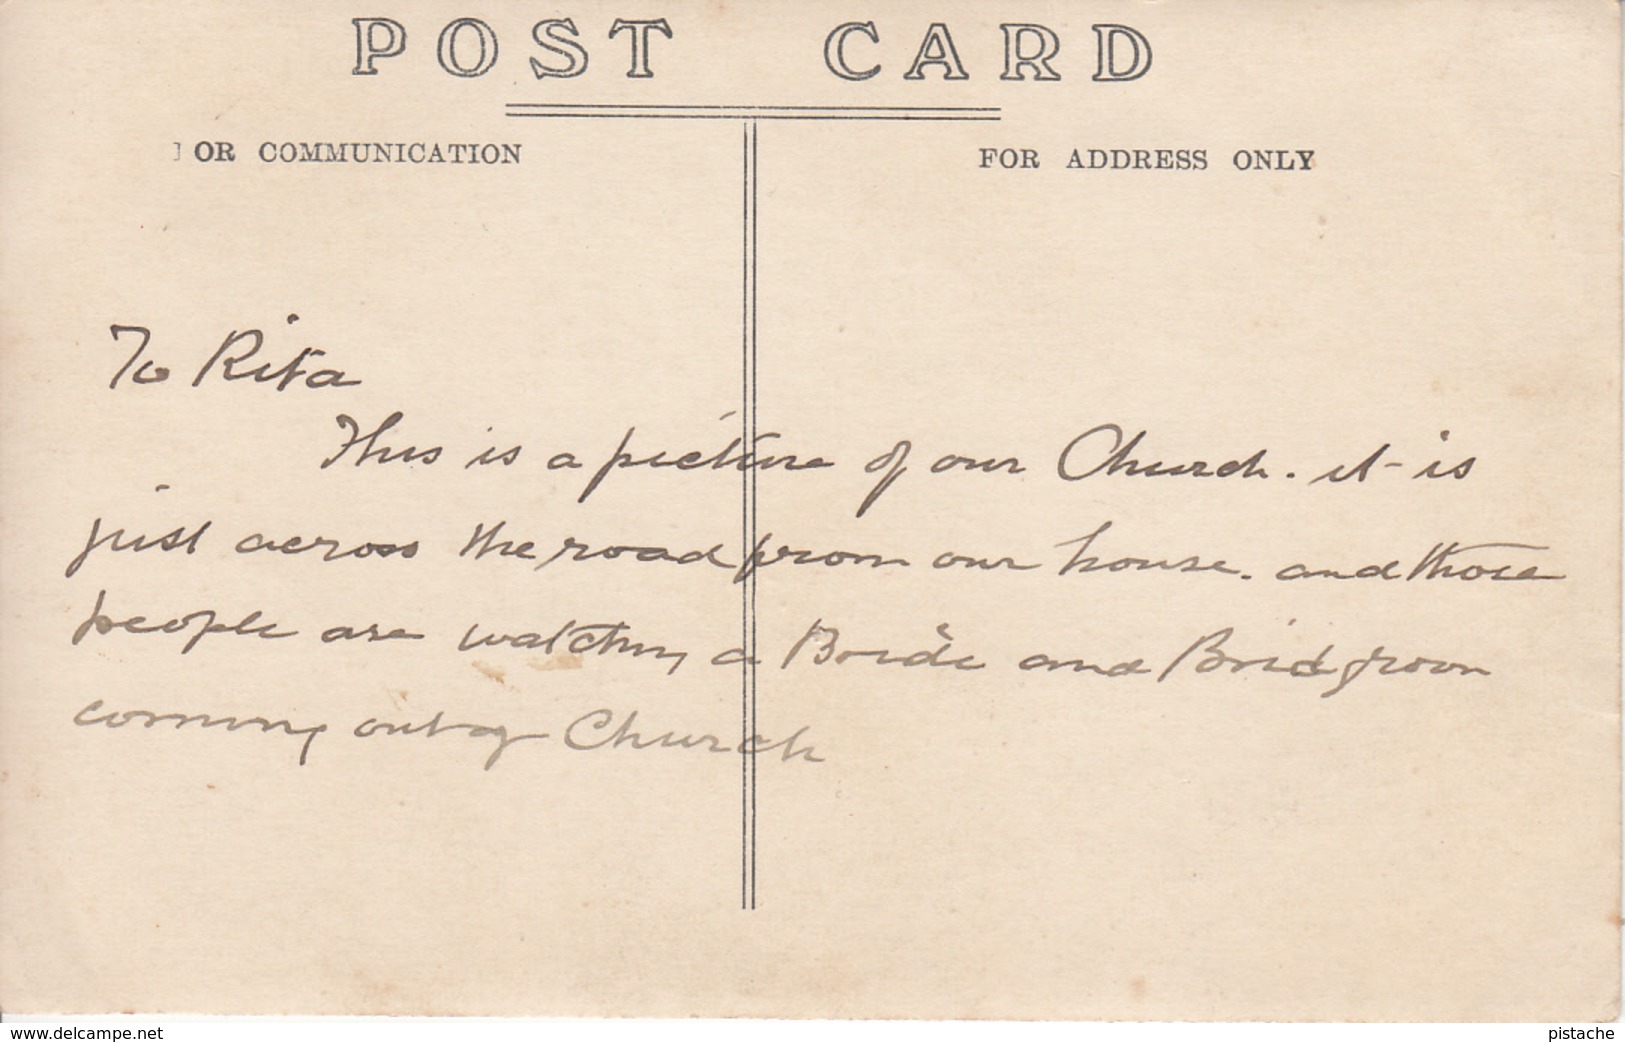 POST CARD
FOR COMMUNICATION
FOR ADDRESS ONLY
To Rita
This is a picture of our Church. it is
just across the road from our house. and those
people are watching a Bride and Bridgroom
coming out of Church
www.delcampe.net
pistache